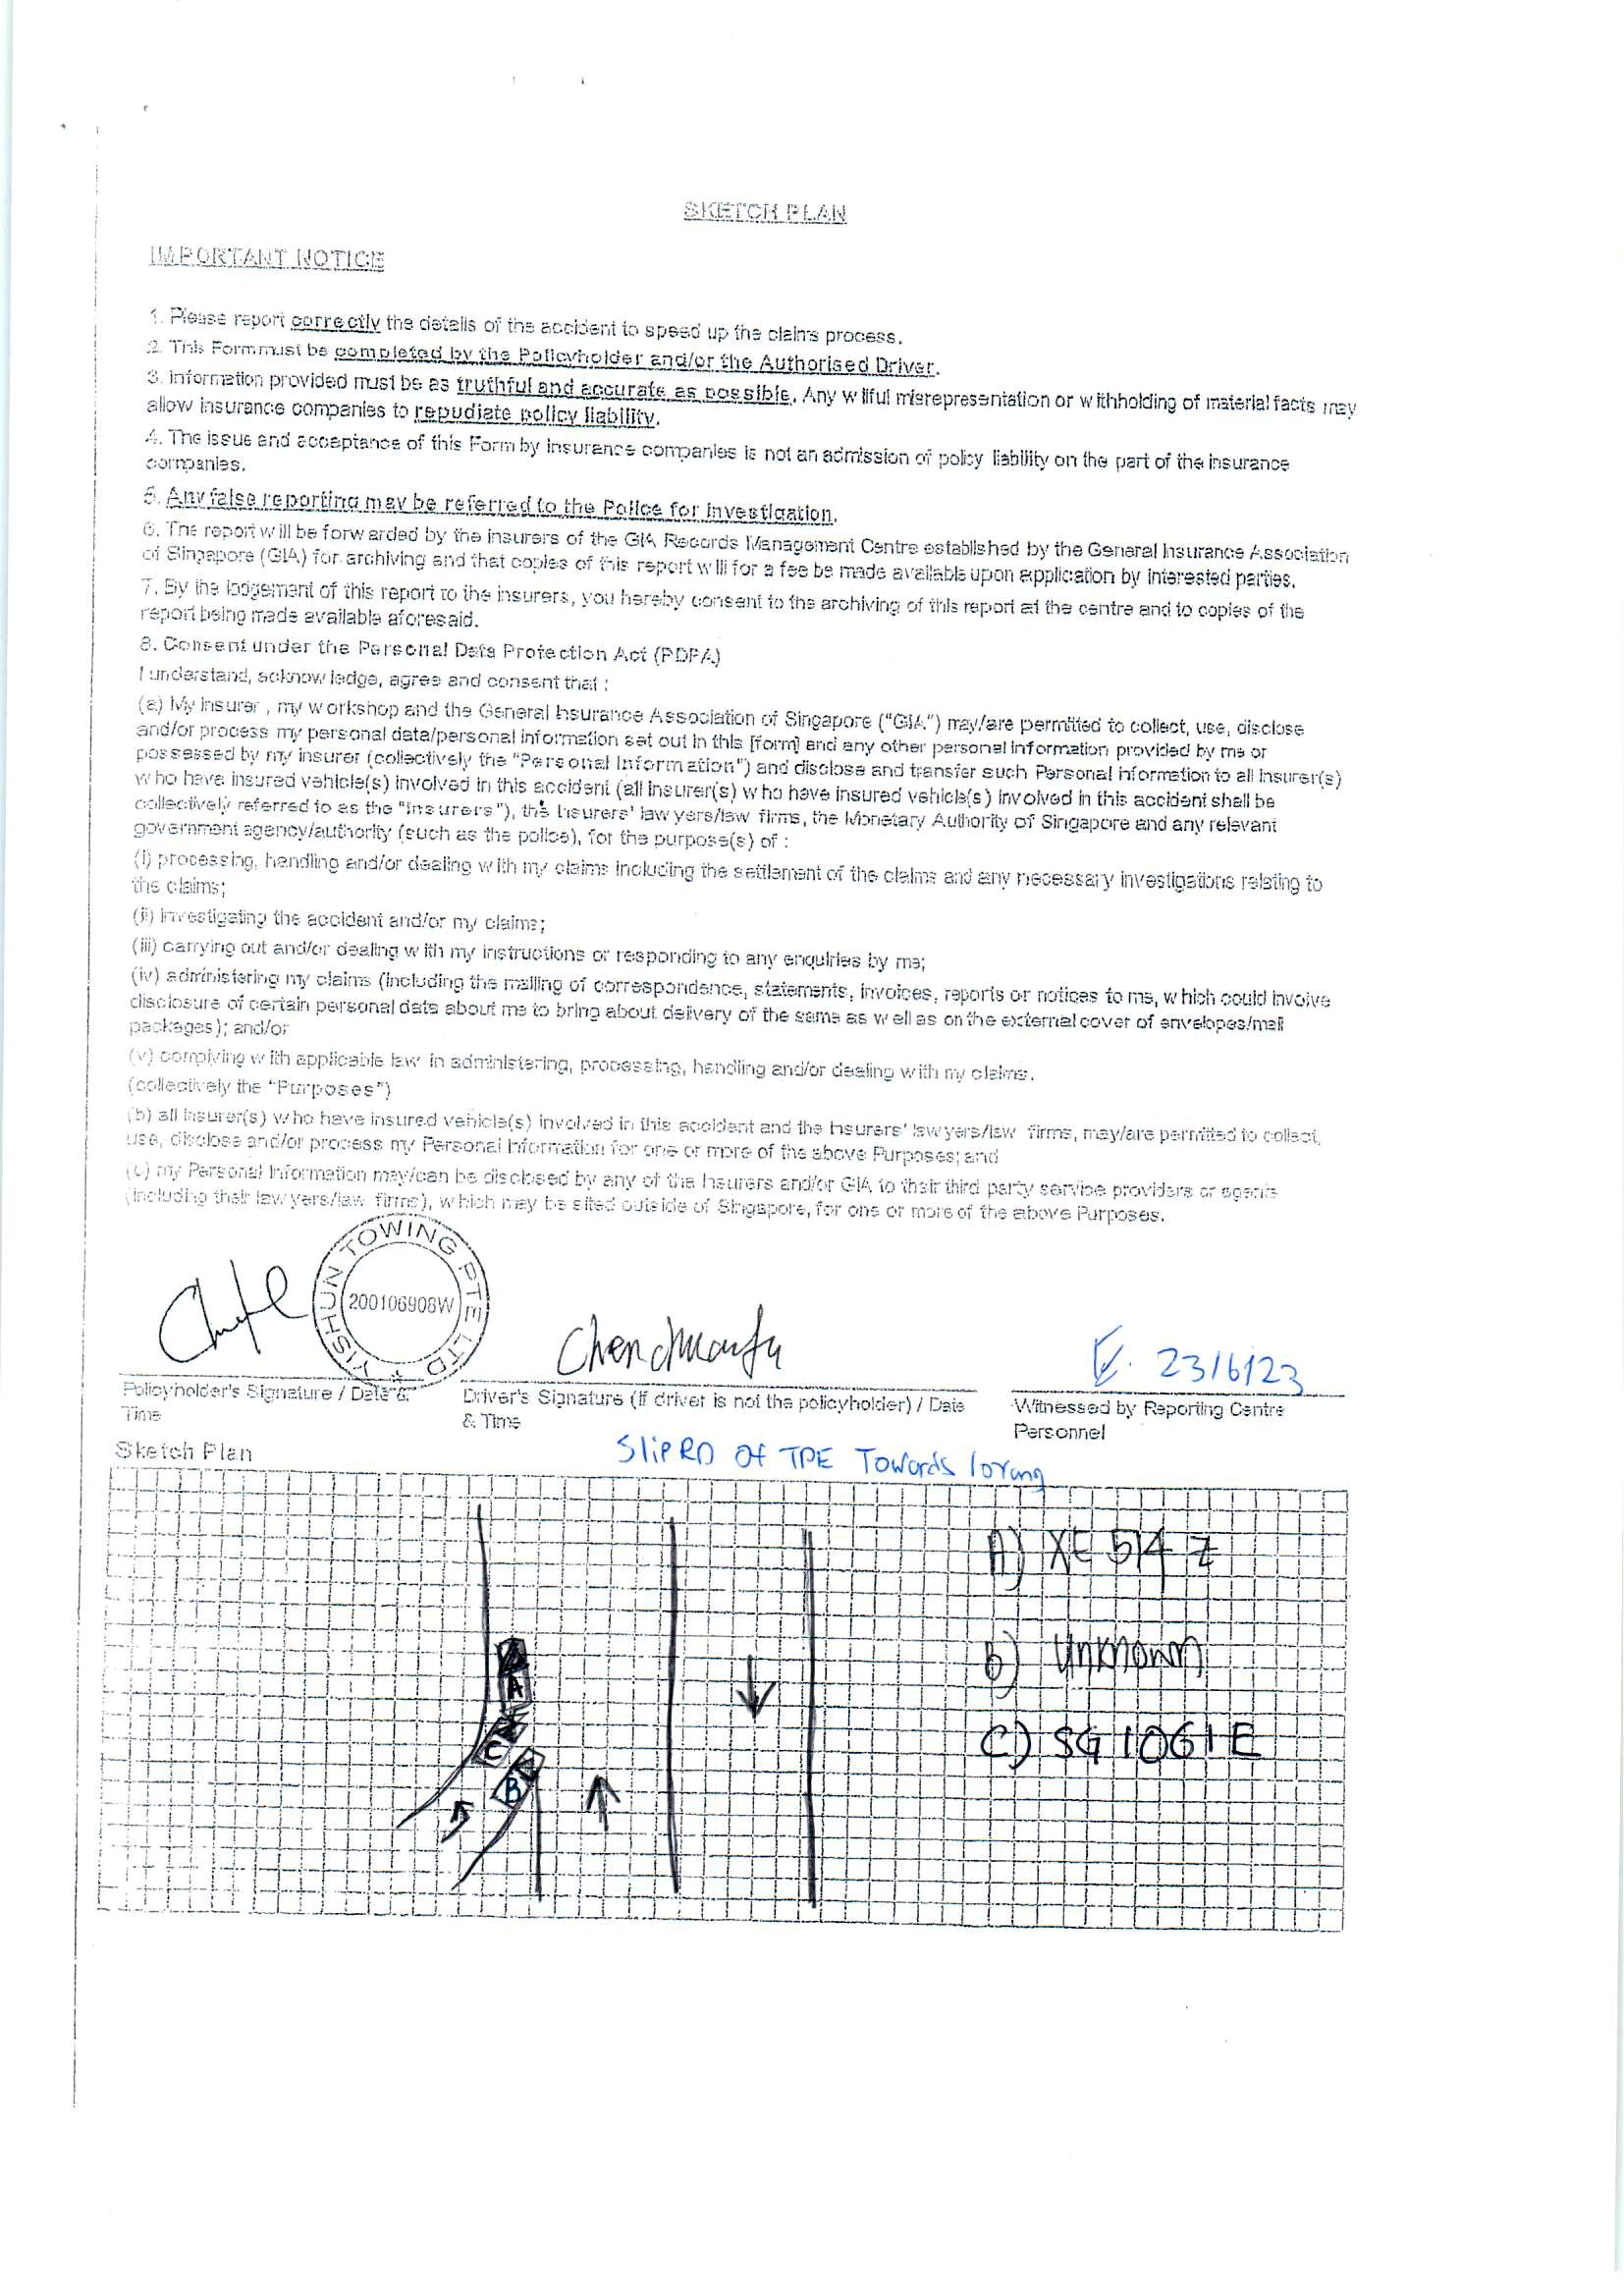 SKETCH PLAN
IMPORTANT NOTICE
1. Please report correctly the details of the accident to speed up the claims process.
2. This Form must be completed by the Policyholder and/or the Authorised Driver.
3. Information provided must be as truthful and accurate as possible. Any wilful misrepresentation or withholding of material facts may
allow insurance companies to repudiate policy liability.
4. The issue and acceptance of this Form by insurance companies is not an admission of policy liability on the part of the insurance
companies.
5. Any false reporting may be referred to the Police for investigation.
6. The report will be forwarded by the insurers of the GIA Records Management Centre established by the General Insurance Association
of Singapore (GIA) for archiving and that copies of this report will for a fee be made available upon application by interested parties.
7. By the lodgement of this report to the insurers, you hereby consent to the archiving of this report at the centre and to copies of the
report being made available aforesaid.
8. Consent under the Personal Data Protection Act (PDPA)
I understand, acknowledge, agree and consent that :
(a) My insurer , my workshop and the General Insurance Association of Singapore ("GIA") may/are permitted to collect, use, disclose
and/or process my personal data/personal information set out in this [form] and any other personal information provided by me or
possessed by my insurer (collectively the "Personal Information") and disclose and transfer such Personal Information to all insurer(s)
who have insured vehicle(s) involved in this accident (all insurer(s) who have insured vehicle(s) involved in this accident shall be
collectively referred to as the "Insurers"), the Insurers' lawyers/law firms, the Monetary Authority of Singapore and any relevant
government agency/authority (such as the police), for the purpose(s) of :
(i) processing, handling and/or dealing with my claims including the settlement of the claims and any necessary investigations relating to
the claims;
(ii) investigating the accident and/or my claims;
(iii) carrying out and/or dealing with my instructions or responding to any enquiries by me;
(iv) administering my claims (including the mailing of correspondence, statements, invoices, reports or notices to me, which could involve
disclosure of certain personal data about me to bring about delivery of the same as well as on the external cover of envelopes/mail
packages); and/or
(v) complying with applicable law in administering, processing, handling and/or dealing with my claims.
(collectively the "Purposes")
(b) all insurer(s) who have insured vehicle(s) involved in this accident and the Insurers' lawyers/law firms, may/are permitted to collect,
use, disclose and/or process my Personal Information for one or more of the above Purposes; and
(c) my Personal Information may/can be disclosed by any of the Insurers and/or GIA to their third party service providers or agents
(including their lawyers/law firms), which may be sited outside of Singapore, for one or more of the above Purposes.
YISHUN TOWING PTE LTD
200106908W
23/6/23
Policyholder's Signature / Date &
Time
Driver's Signature (if driver is not the policyholder) / Date
& Time
Witnessed by Reporting Centre
Personnel
Sketch Plan
SLIP RD Of TPE Towards lorong
A) XE 514 Z
B) Unknown
C) SG 1061E
A
C
B